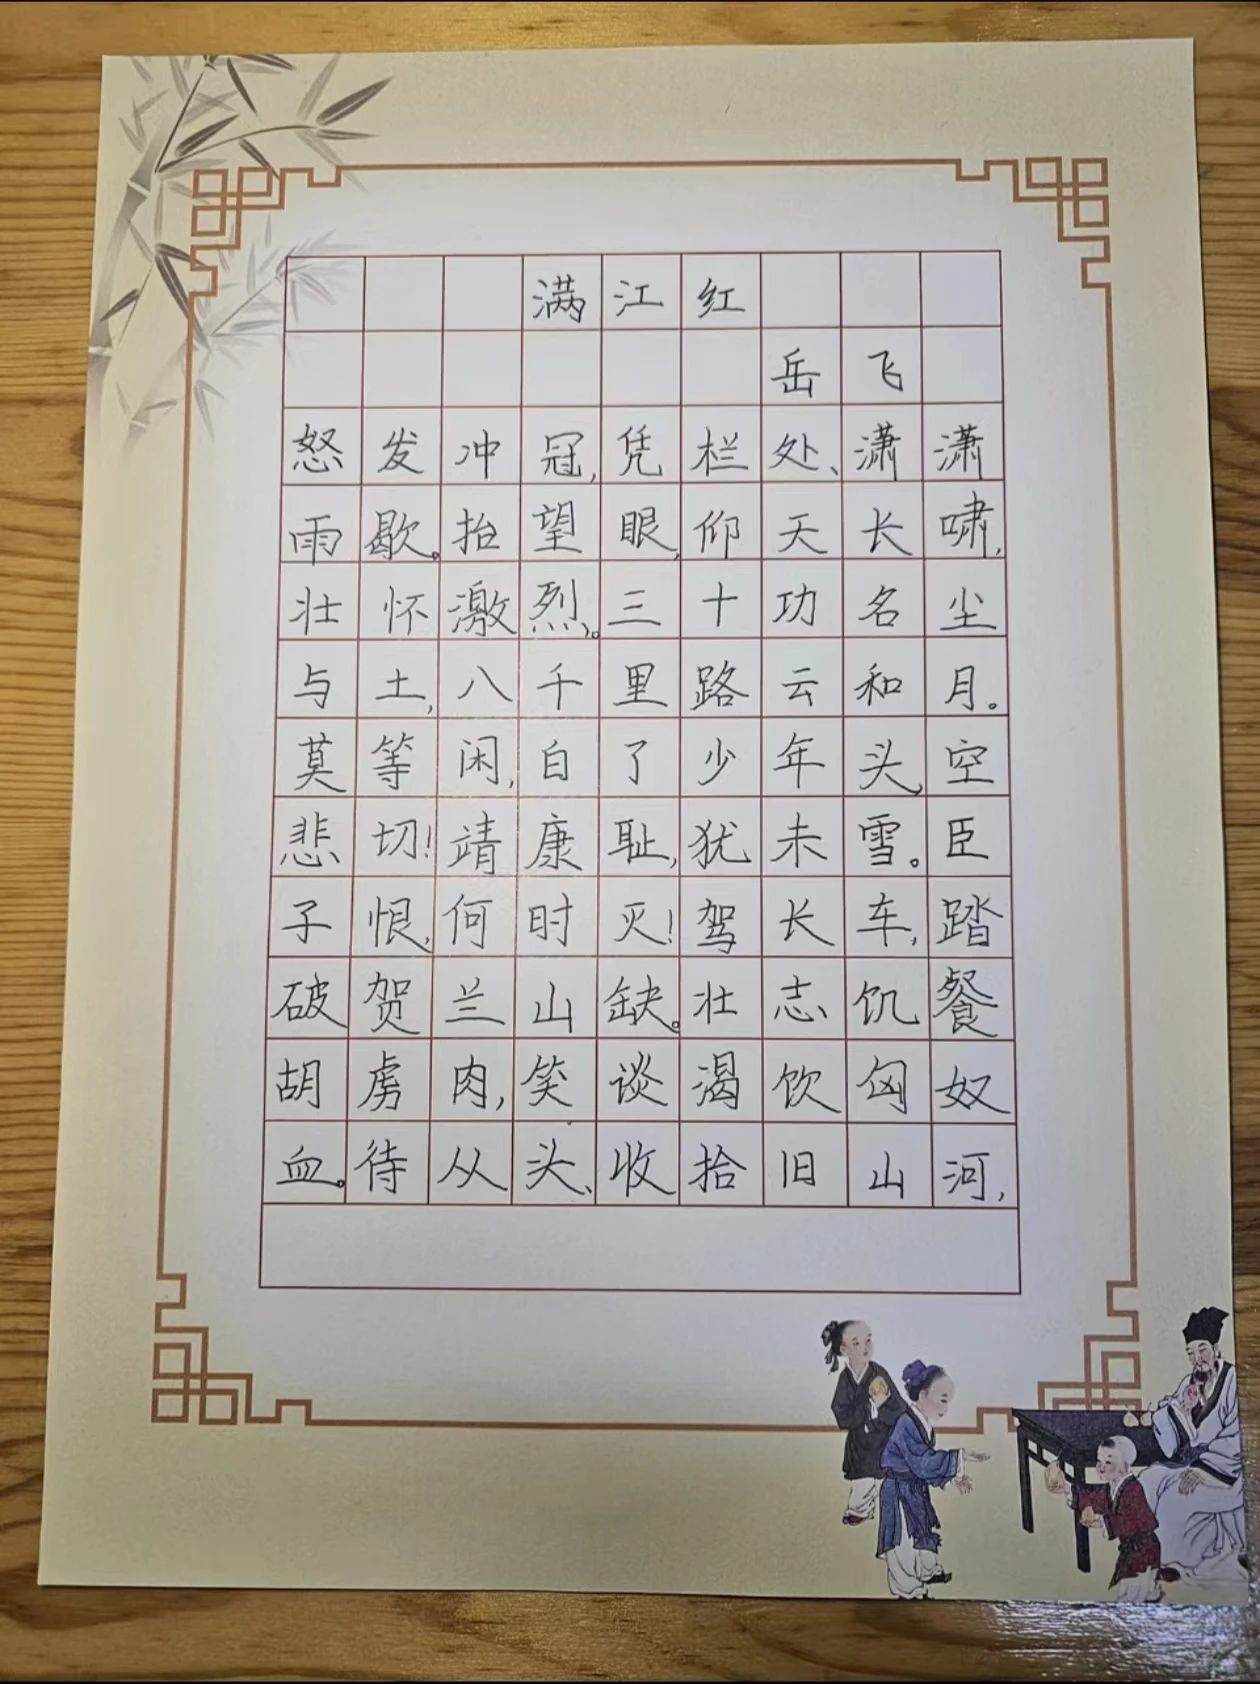 满江红
岳飞
怒发冲冠,凭栏处、潇潇
雨歇。抬望眼,仰天长啸,
壮怀激烈。三十功名尘
与土,八千里路云和月。
莫等闲,白了少年头,空
悲切!靖康耻,犹未雪。臣
子恨,何时灭!驾长车,踏
破贺兰山缺。壮志饥餐
胡虏肉,笑谈渴饮匈奴
血。待从头、收拾旧山河,